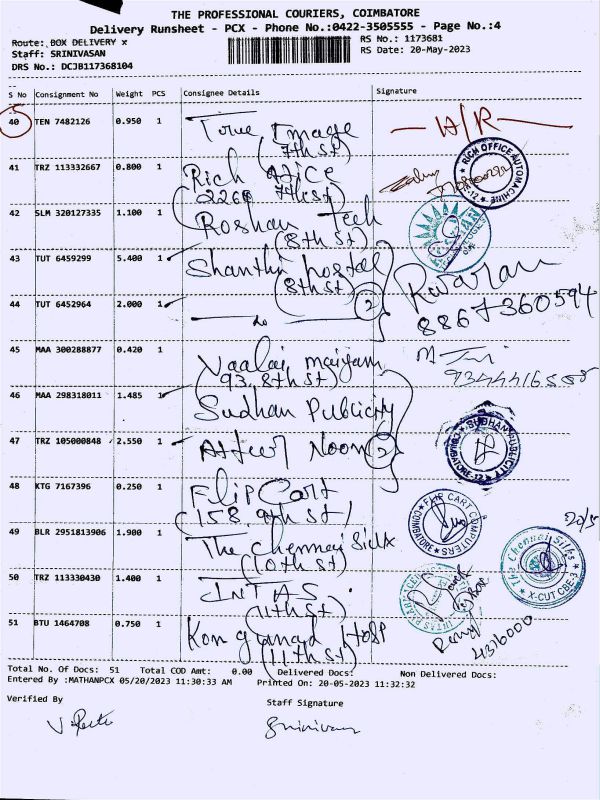 THE PROFESSIONAL COURIERS, COIMBATORE
Delivery Runsheet - PCX - Phone No.:0422-3505555 - Page No.:4
Route: BOX DELIVERY x
RS No.: 1173681
Staff: SRINIVASAN
RS Date: 20-May-2023
DRS No.: DCJB117368104
S No Consignment No Weight PCS Consignee Details Signature
40 TEN 7482126 0.950 1 True Image
(7th st)
41 TRZ 113332667 0.800 1 Rich
(2260 7th st)
RICH OFFICE AUTOMACHINE
42 SLM 320127335 1.100 1 Roshan Tech
(8th st)
43 TUT 6459299 5.400 1 Shanthi hostel
(8th st)
44 TUT 6452964 2.000 1 2
8867360594
45 MAA 300288877 0.420 1 Vaalai maiyam
(93, 8th st)
46 MAA 298318011 1.485 1 Sudhan Publicity
SUDHAN PUBLICITY
47 TRZ 105000848 2.550 1 After Noon 2
48 KTG 7167396 0.250 1 Flip Cart
(158, 9th st)
FLIP CART COMPUTERS
COIMBATORE
20/5
49 BLR 2951813906 1.900 1 The Chennai Silks
(10th st)
The Chennai Silks
X-CUT CBE-3
50 TRZ 113330430 1.400 1 INTAS
(11th st)
51 BTU 1464708 0.750 1 Kongunad Hosp
(11th st)
4316000
Total No. Of Docs: 51 Total COD Amt: 0.00 Delivered Docs: Non Delivered Docs:
Entered By :MATHANPCX 05/20/2023 11:30:33 AM Printed On: 20-05-2023 11:32:32
Verified By
Staff Signature
Srinivasan